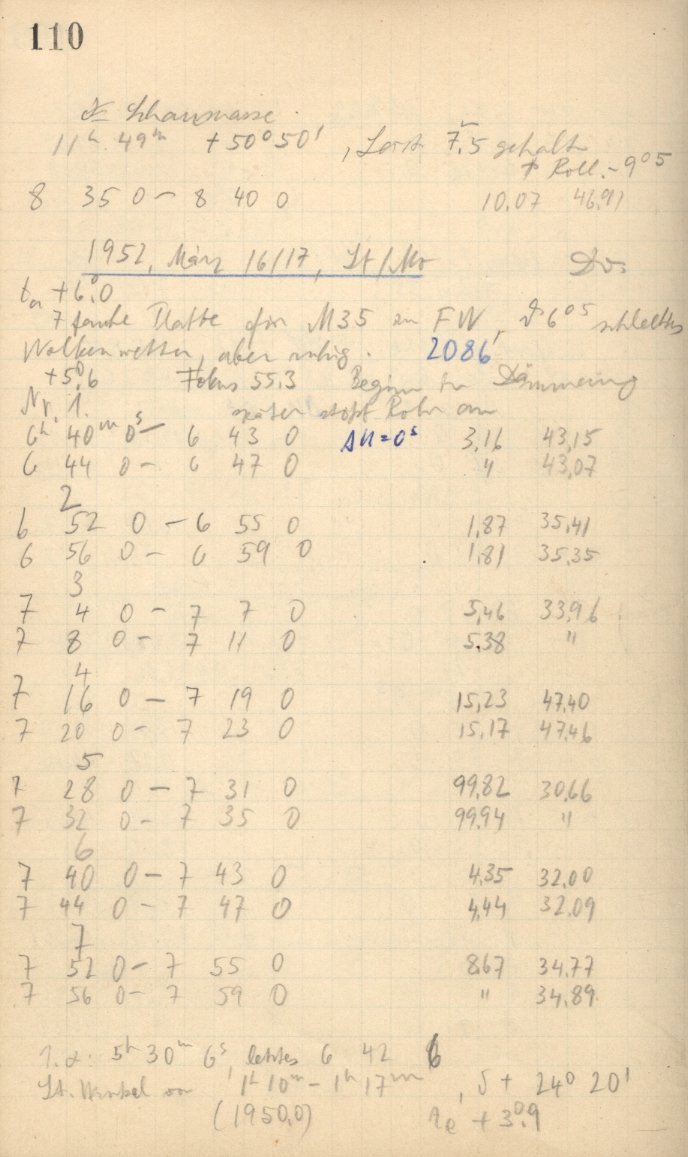 110
Schaumasse.
11h 49m +50° 50', 7,5 gehalten
Roll. -9°05
8 35 0 – 8 40 0 10,07 46,91
1952, März 16/17, St/Mo
ta +6°,0
7 fache Platte für M35 FW, 6°05 schlechtes
Wolkenwetter, aber ruhig. 2086
+5°,6 Fokus 55,3 Beginn Dämmerung
Nr. 1. später stößt Rohr an
6h 40m 0s – 6 43 0 Δu=0s 3,16 43,15
6 44 0 – 6 47 0 " 43,07
2
6 52 0 – 6 55 0 1,87 35,41
6 56 0 – 6 59 0 1,81 35,35
3
7 4 0 – 7 7 0 5,46 33,96
7 8 0 – 7 11 0 5,38 "
4
7 16 0 – 7 19 0 15,23 47,40
7 20 0 – 7 23 0 15,17 47,46
5
7 28 0 – 7 31 0 99,82 30,66
7 32 0 – 7 35 0 99,94 "
6
7 40 0 – 7 43 0 4,35 32,00
7 44 0 – 7 47 0 4,44 32,09
7
7 52 0 – 7 55 0 8,67 34,77
7 56 0 – 7 59 0 " 34,89
1. α: 5h 30m 6s letztes 6 42 6
St. Winkel von 1h 10m – 1h 17m, δ + 24° 20'
(1950,0) te + 3°,9